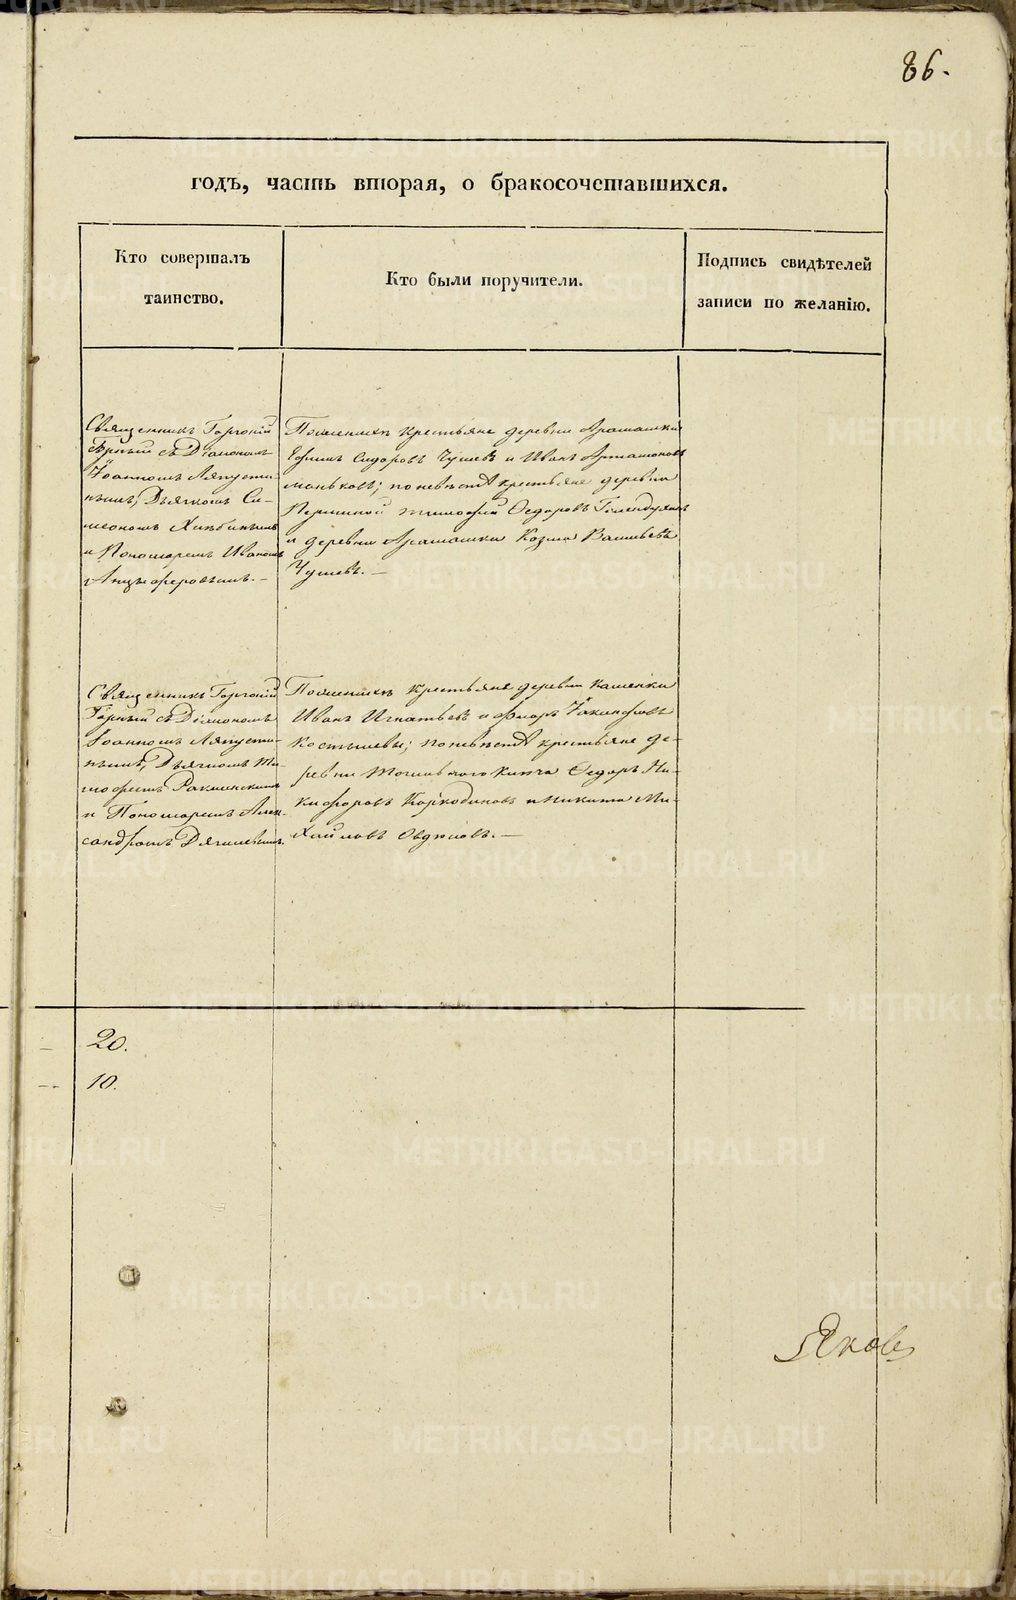 86.
годъ, часть вторая, о бракосочетавшихся.
Кто совершалъ
таинство.
Кто были поручители.
Подпись свидѣтелей
записи по желанію.
Священникъ Горгоній
Горный съ Діакономъ
Іоанномъ Ляпусти-
нымъ, Дьячкомъ Си-
меономъ Хлѣбинымъ
и Пономаремъ Иваномъ
Анцыферовымъ.-
По женихѣ крестьяне деревни Арамашки
Ефимъ Сидоровъ Чушевъ и Иванъ Артамоновъ
Маньковъ; по невѣстѣ крестьяне деревни
Першиной Тимофей Ѳедоровъ Голендухинъ
и деревни Арамашки Козма Васильевъ
Чушевъ.-
Священникъ Горгоній
Горный съ Діакономъ
Іоанномъ Ляпусти-
нымъ, Дьячкомъ Ти-
мофеемъ
и Пономаремъ Алек-
сандромъ Дягилевымъ.
По женихѣ крестьяне деревни Каменки
Иванъ Игнатьевъ и
Костылевы; по невѣстѣ крестьяне де-
ревни Ѳедоръ Ни-
кифоровъ Коркодиновъ и Никита Ми-
хайловъ Овдюковъ.-
20.
10.
Яковъ
METRIKI.GASO-URAL.RU